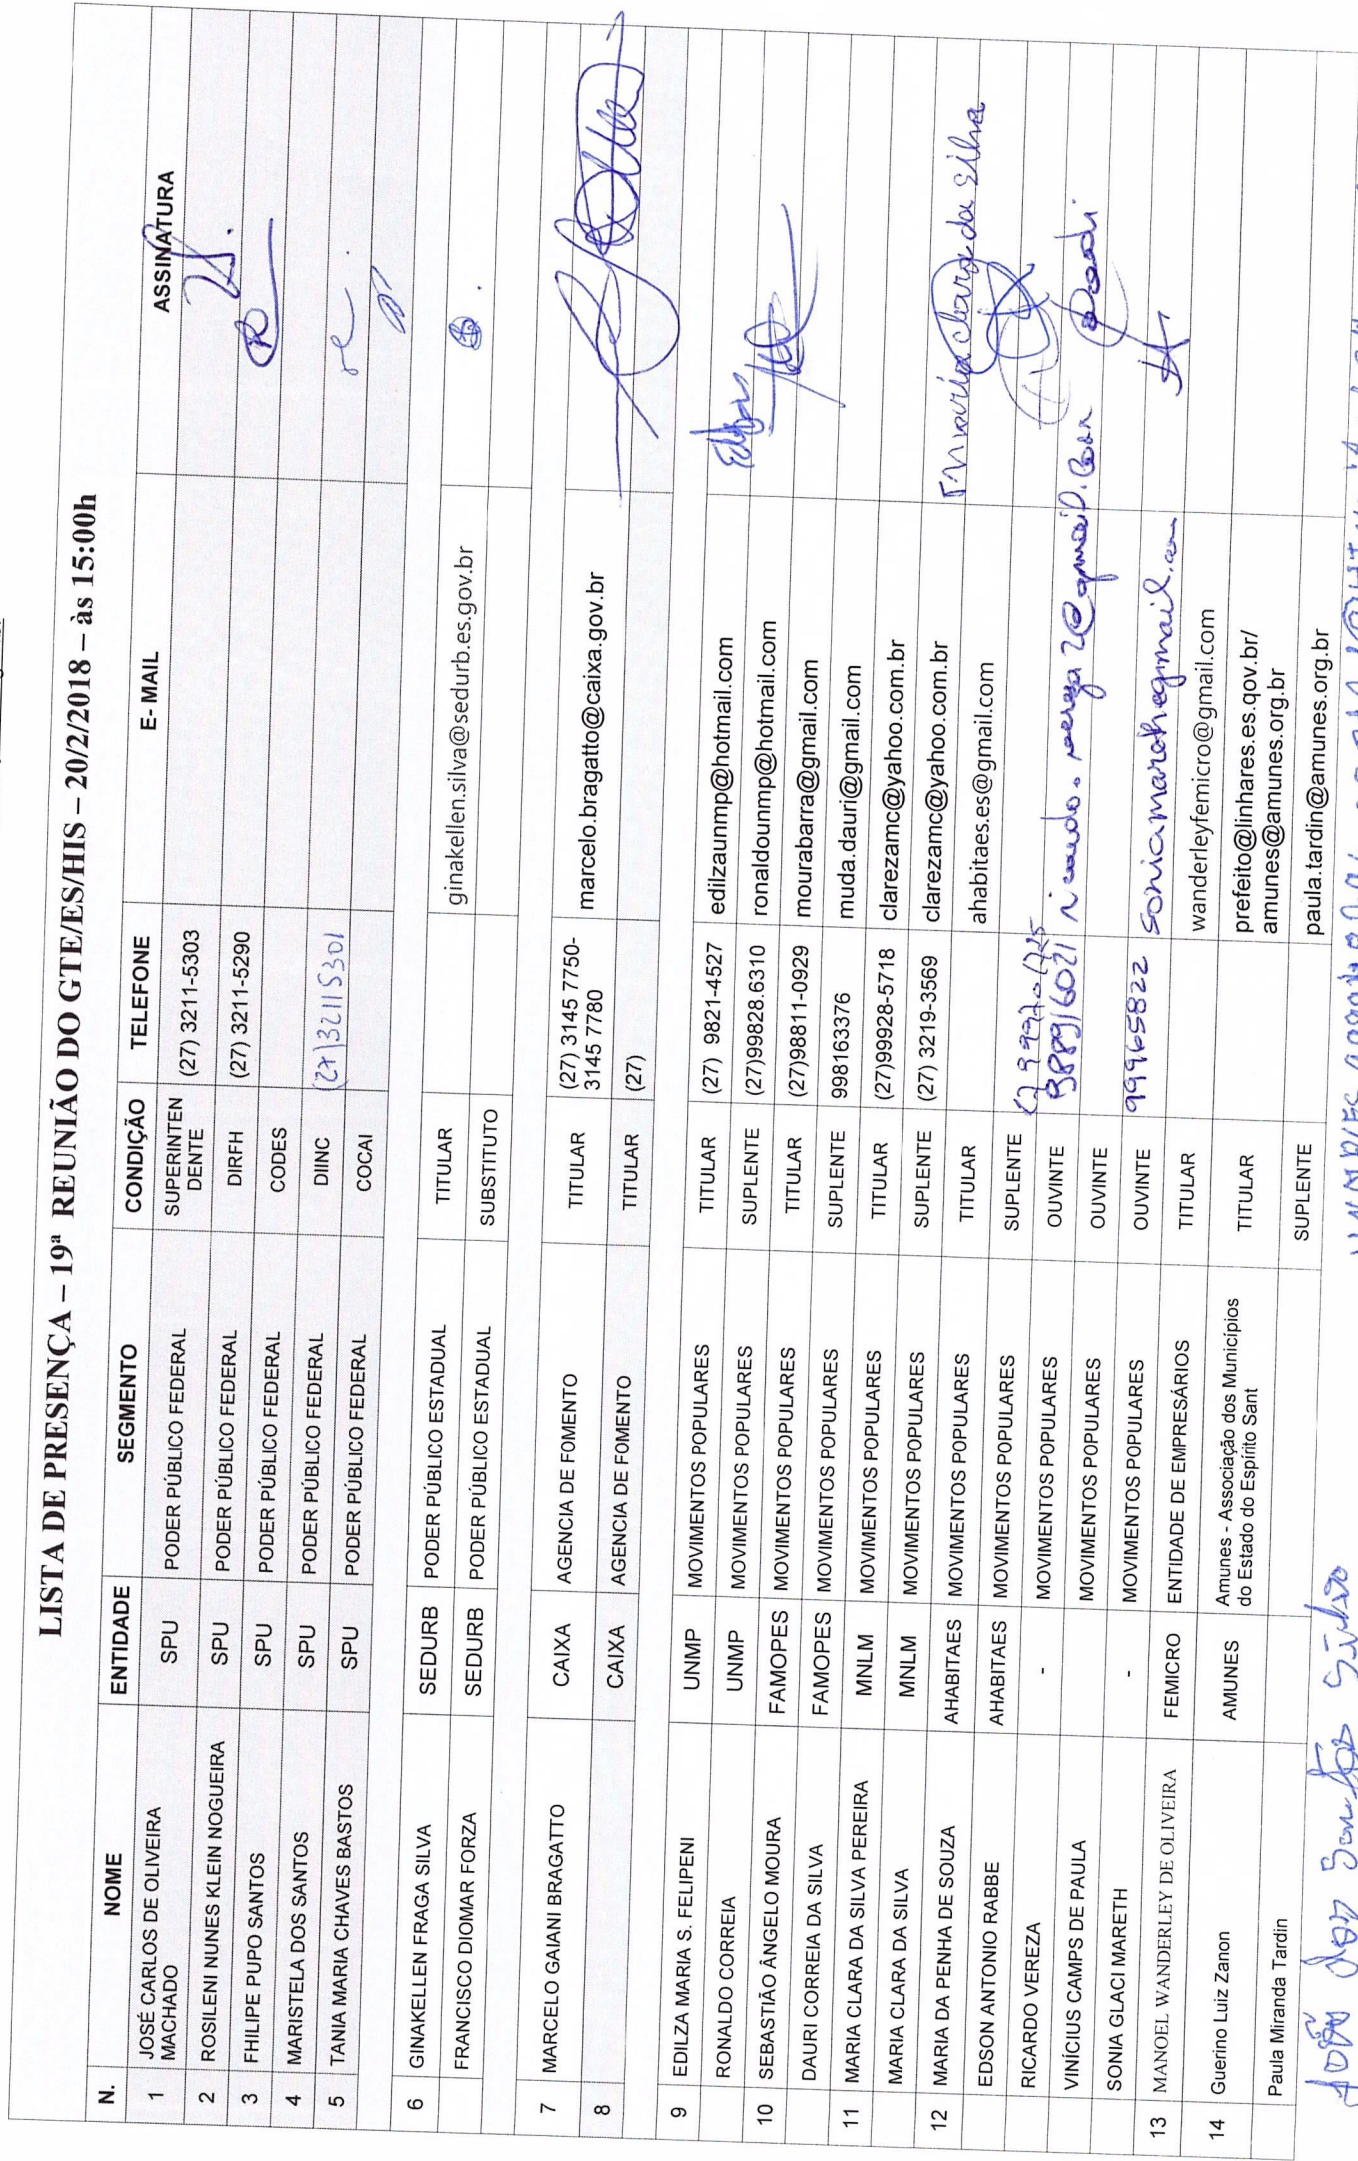 LISTA DE PRESENÇA – 19ª REUNIÃO DO GTE/ES/HIS – 20/2/2018 – às 15:00h
N. NOME ENTIDADE SEGMENTO CONDIÇÃO TELEFONE E- MAIL ASSINATURA
1 JOSÉ CARLOS DE OLIVEIRA MACHADO SPU PODER PÚBLICO FEDERAL SUPERINTEN DENTE (27) 3211-5303
2 ROSILENI NUNES KLEIN NOGUEIRA SPU PODER PÚBLICO FEDERAL DIRFH (27) 3211-5290
3 FHILIPE PUPO SANTOS SPU PODER PÚBLICO FEDERAL CODES
4 MARISTELA DOS SANTOS SPU PODER PÚBLICO FEDERAL DIINC (27)32115301
5 TANIA MARIA CHAVES BASTOS SPU PODER PÚBLICO FEDERAL COCAI
6 GINAKELLEN FRAGA SILVA SEDURB PODER PÚBLICO ESTADUAL TITULAR ginakellen.silva@sedurb.es.gov.br
FRANCISCO DIOMAR FORZA SEDURB PODER PÚBLICO ESTADUAL SUBSTITUTO
7 MARCELO GAIANI BRAGATTO CAIXA AGENCIA DE FOMENTO TITULAR (27) 3145 7750- 3145 7780 marcelo.bragatto@caixa.gov.br
8 CAIXA AGENCIA DE FOMENTO TITULAR (27)
9 EDILZA MARIA S. FELIPENI UNMP MOVIMENTOS POPULARES TITULAR (27) 9821-4527 edilzaunmp@hotmail.com
RONALDO CORREIA UNMP MOVIMENTOS POPULARES SUPLENTE (27)99828.6310 ronaldounmp@hotmail.com
10 SEBASTIÃO ÂNGELO MOURA FAMOPES MOVIMENTOS POPULARES TITULAR (27)98811-0929 mourabarra@gmail.com
DAURI CORREIA DA SILVA FAMOPES MOVIMENTOS POPULARES SUPLENTE 998163376 muda.dauri@gmail.com
11 MARIA CLARA DA SILVA PEREIRA MNLM MOVIMENTOS POPULARES TITULAR (27)99928-5718 clarezamc@yahoo.com.br
MARIA CLARA DA SILVA MNLM MOVIMENTOS POPULARES SUPLENTE (27) 3219-3569 clarezamc@yahoo.com.br Maria Clara da Silva
12 MARIA DA PENHA DE SOUZA AHABITAES MOVIMENTOS POPULARES TITULAR ahabitaes.es@gmail.com
EDSON ANTONIO RABBE AHABITAES MOVIMENTOS POPULARES SUPLENTE
RICARDO VEREZA - MOVIMENTOS POPULARES OUVINTE
VINÍCIUS CAMPS DE PAULA MOVIMENTOS POPULARES OUVINTE
SONIA GLACI MARETH - MOVIMENTOS POPULARES OUVINTE 999965822
13 MANOEL WANDERLEY DE OLIVEIRA FEMICRO ENTIDADE DE EMPRESÁRIOS TITULAR wanderleyfemicro@gmail.com
14 Guerino Luiz Zanon AMUNES Amunes - Associação dos Municípios do Estado do Espírito Sant TITULAR prefeito@linhares.es.qov.br/ amunes@amunes.org.br
Paula Miranda Tardin SUPLENTE paula.tardin@amunes.org.br
João dos Santos Silva